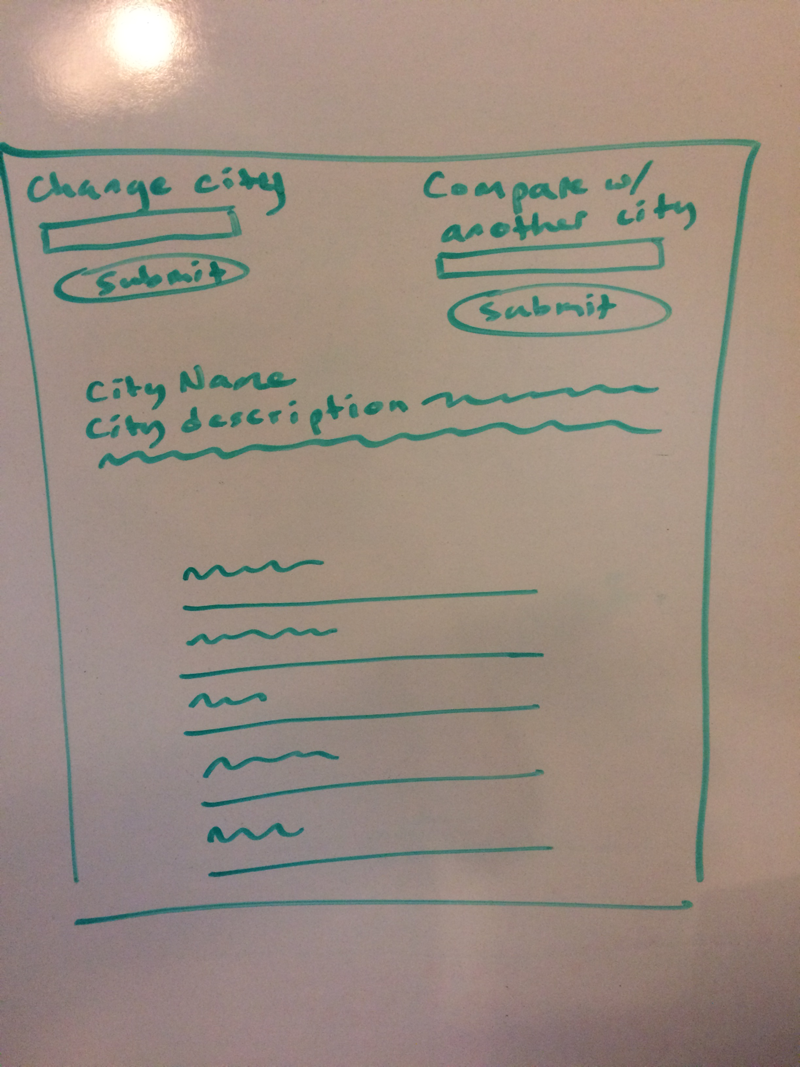 Change city
Submit
Compare w/
another city
Submit
City Name
City description